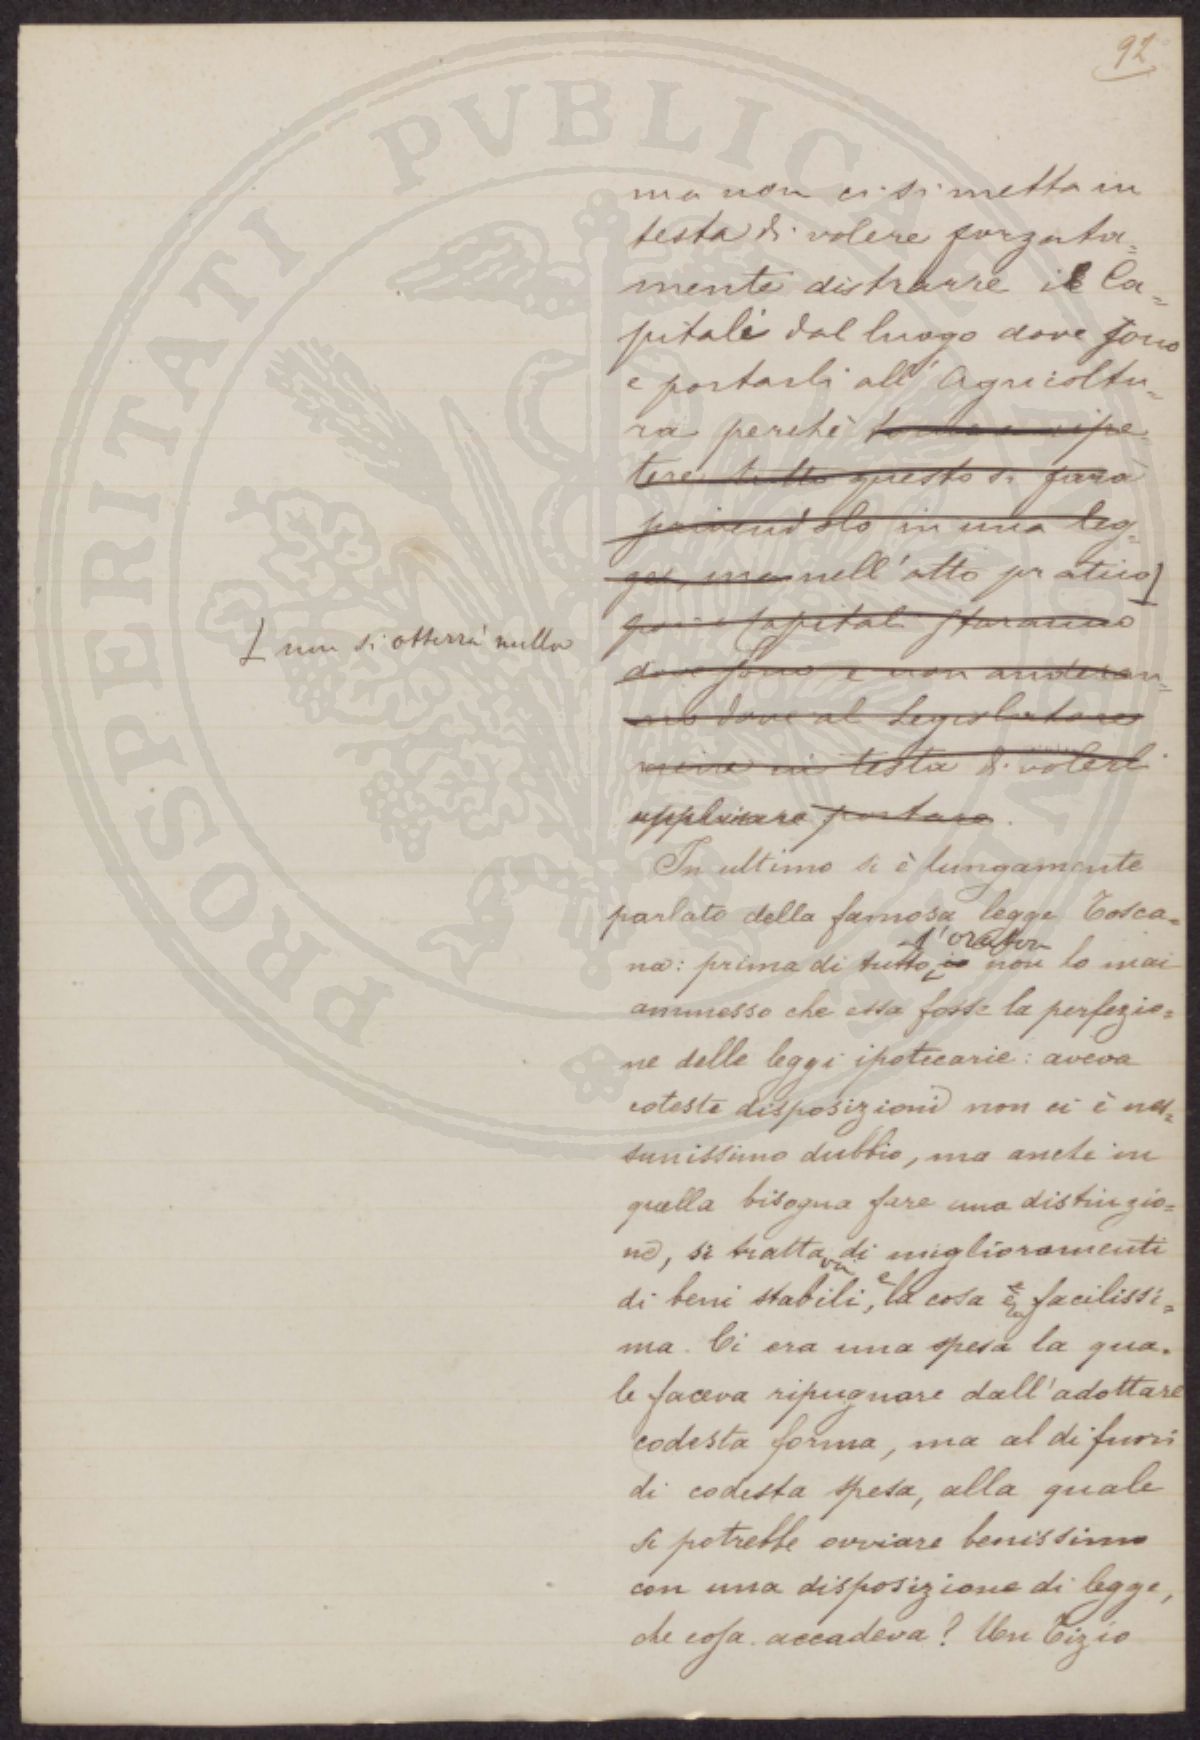 92
ma non ci si metta in
testa di volere forzata=
mente distrarre i Ca=
pitali dal luogo dove sono
e portarli all'Agricoltu=
ra perchè torno a ripe
tere tutto questo si farà
scrivendolo in una leg=
ge, ma nell'atto pratico
poi i Capitali staranno
dove sono e non anderan=
no dove al Legislatore
viene in testa di volerli
applicare portare.
[ non si otterrà nulla
In ultimo si è lungamente
parlato della famosa legge Tosca=
l'orator
na: prima di tutto, io non lo mai
ammesso che essa fosse la perfezio=
ne delle leggi ipotecarie: aveva
coteste disposizioni non ci è nes=
sunissimo dubbio, ma anche in
quella bisogna fare una distinzio=
ne, si trattava di miglioramenti
di beni stabili, e la cosa è facilissi=
ma. Ci era una spesa la qua=
le faceva ripugnare dall'adottare
codesta forma, ma al di fuori
di codesta spesa, alla quale
si potrebbe ovviare benissimo
con una disposizione di legge,
che cosa accadeva? Un Tizio
PROSPERITATI PVBLICAE